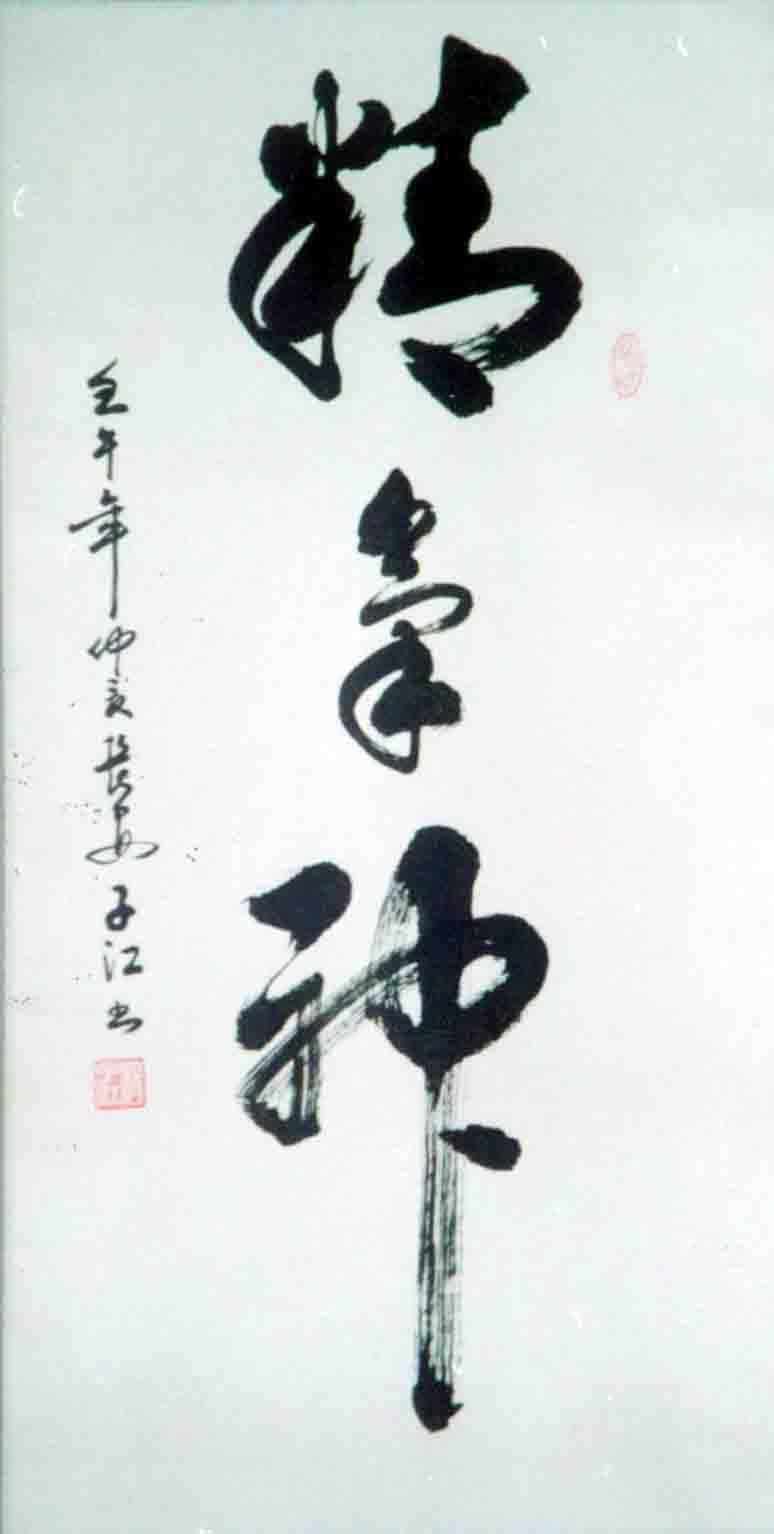 精氣神
壬午年仲夏 子江书